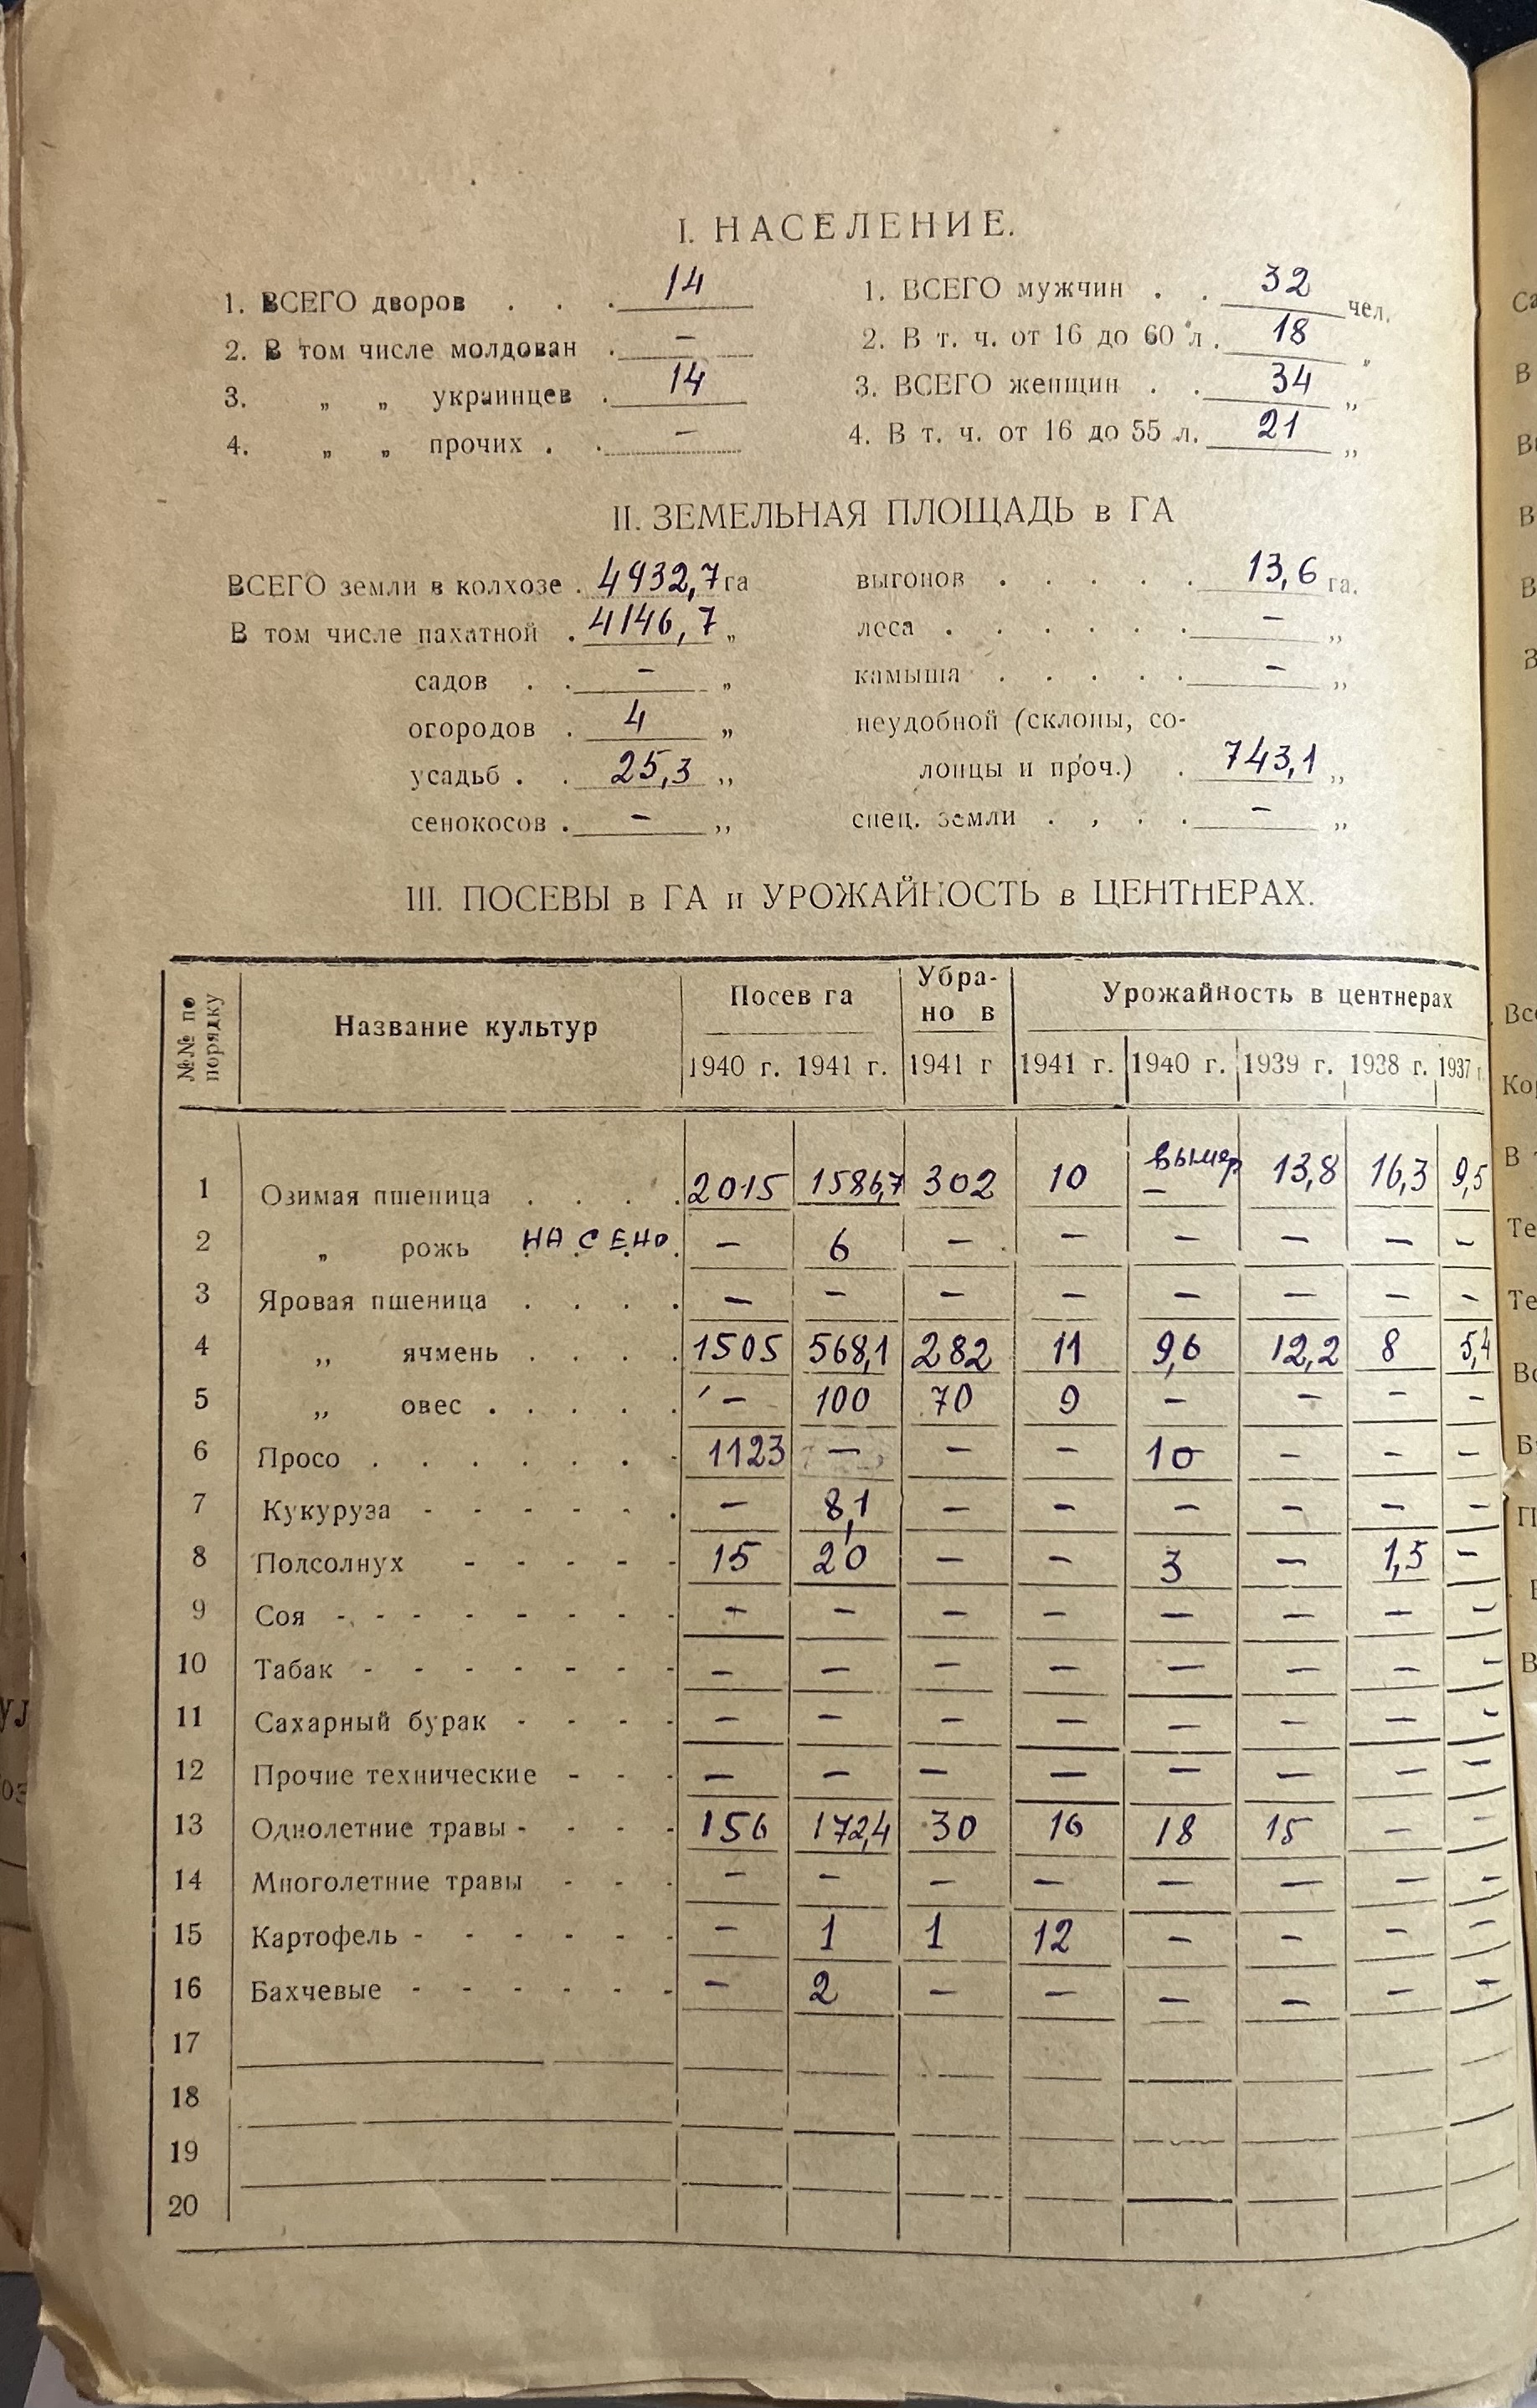 I. НАСЕЛЕНИЕ.
1. ВСЕГО дворов . . . 14
2. В том числе молдован . —
3. „ „ украинцев . 14
4. „ „ прочих . . —
1. ВСЕГО мужчин . . 32 чел.
2. В т. ч. от 16 до 60 л. 18 „
3. ВСЕГО женщин . . 34 „
4. В т. ч. от 16 до 55 л. 21 „
II. ЗЕМЕЛЬНАЯ ПЛОЩАДЬ в ГА
ВСЕГО земли в колхозе . 4932,7 га
В том числе пахатной . 4146,7 „
садов . . — „
огородов . 4 „
усадьб . . 25,3 „
сенокосов . — „
выгонов . . . . . 13,6 га.
леса . . . . . . — „
камыша . . . . . — „
неудобной (склоны, со-
лонцы и проч.) . 743,1 „
спец. земли . , . . — „
III. ПОСЕВЫ в ГА и УРОЖАЙНОСТЬ в ЦЕНТНЕРАХ.
№№ по порядку Название культур Посев га Убра- но в Урожайность в центнерах
1940 г. 1941 г. 1941 г 1941 г. 1940 г. 1939 г. 1938 г. 1937 г.
1 Озимая пшеница . . . . 2015 1586,7 302 10 вымер. — 13,8 16,3 9,5
2 „ рожь НА СЕНО. — 6 — — — — — —
3 Яровая пшеница . . . . — — — — — — — —
4 „ ячмень . . . . 1505 568,1 282 11 9,6 12,2 8 5,4
5 „ овес . . . . . — 100 70 9 — — — —
6 Просо . . . . . . . 1123 — — — 10 — — —
7 Кукуруза - - - - - . — 8,1 — — — — — —
8 Подсолнух - - - - - 15 20 — — 3 — 1,5 —
9 Соя - - - - - - - - — — — — — — — —
10 Табак - - - - - - - — — — — — — — —
11 Сахарный бурак - - - - — — — — — — — —
12 Прочие технические - - - — — — — — — — —
13 Однолетние травы - - - - 156 172,4 30 16 18 15 — —
14 Многолетние травы - - - — — — — — — — —
15 Картофель - - - - - - — 1 1 12 — — — —
16 Бахчевые - - - - - - — 2 — — — — — —
17
18
19
20